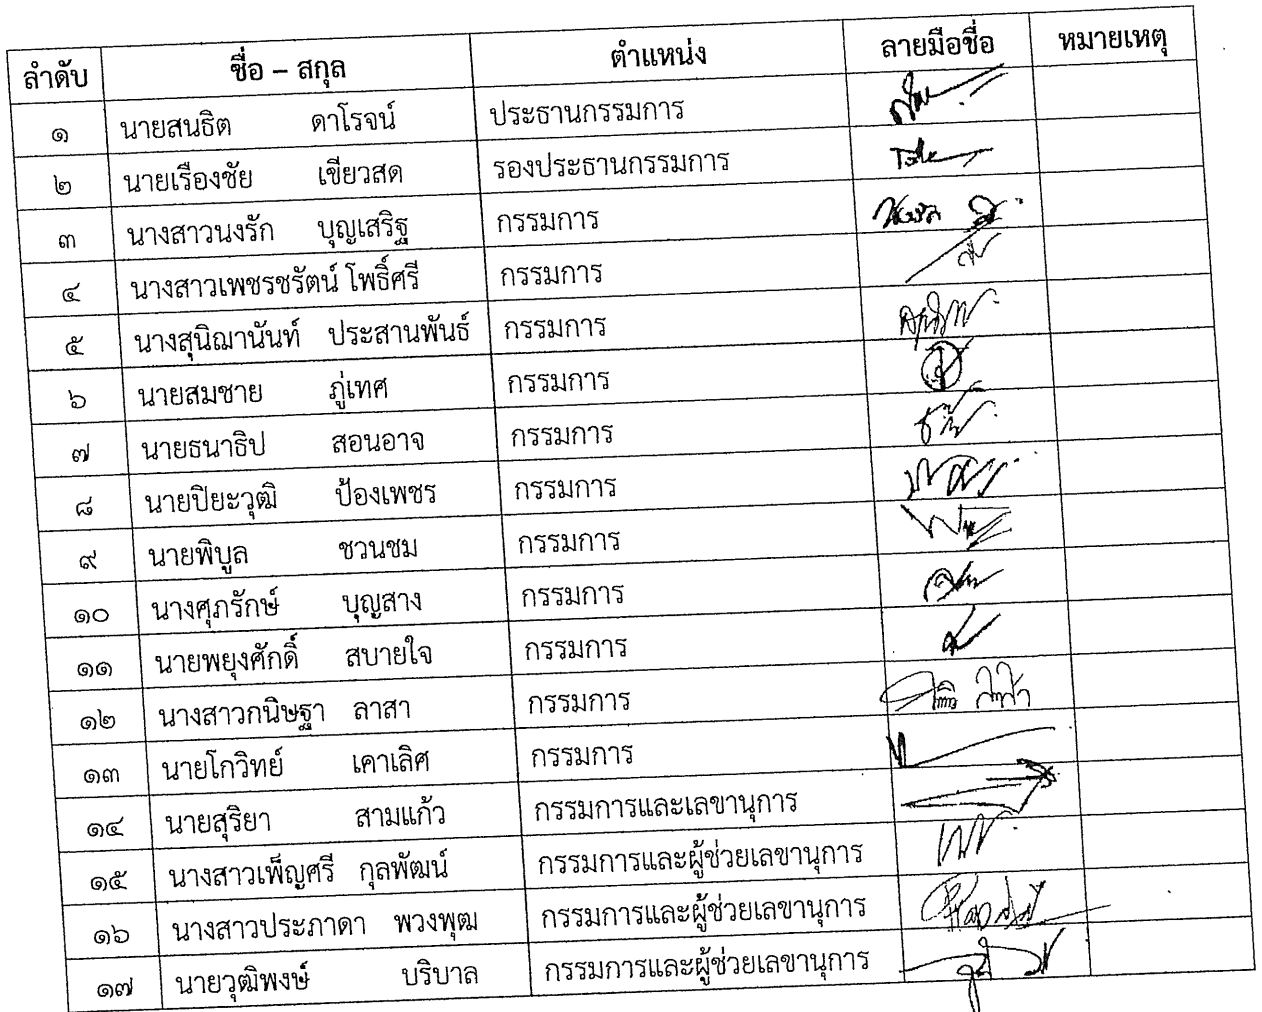 ลำดับ ชื่อ – สกุล ตำแหน่ง ลายมือชื่อ หมายเหตุ
๑ นายสนธิต ดาโรจน์ ประธานกรรมการ
๒ นายเรืองชัย เขียวสด รองประธานกรรมการ
๓ นางสาวนงรัก บุญเสริฐ กรรมการ
๔ นางสาวเพชรชรัตน์ โพธิ์ศรี กรรมการ
๕ นางสุนิฌานันท์ ประสานพันธ์ กรรมการ
๖ นายสมชาย ภู่เทศ กรรมการ
๗ นายธนาธิป สอนอาจ กรรมการ
๘ นายปิยะวุฒิ ป้องเพชร กรรมการ
๙ นายพิบูล ชวนชม กรรมการ
๑๐ นางศุภรักษ์ บุญสาง กรรมการ
๑๑ นายพยุงศักดิ์ สบายใจ กรรมการ
๑๒ นางสาวกนิษฐา ลาสา กรรมการ
๑๓ นายโกวิทย์ เคาเลิศ กรรมการ
๑๔ นายสุริยา สามแก้ว กรรมการและเลขานุการ
๑๕ นางสาวเพ็ญศรี กุลพัฒน์ กรรมการและผู้ช่วยเลขานุการ
๑๖ นางสาวประภาดา พวงพุฒ กรรมการและผู้ช่วยเลขานุการ
๑๗ นายวุฒิพงษ์ บริบาล กรรมการและผู้ช่วยเลขานุการ